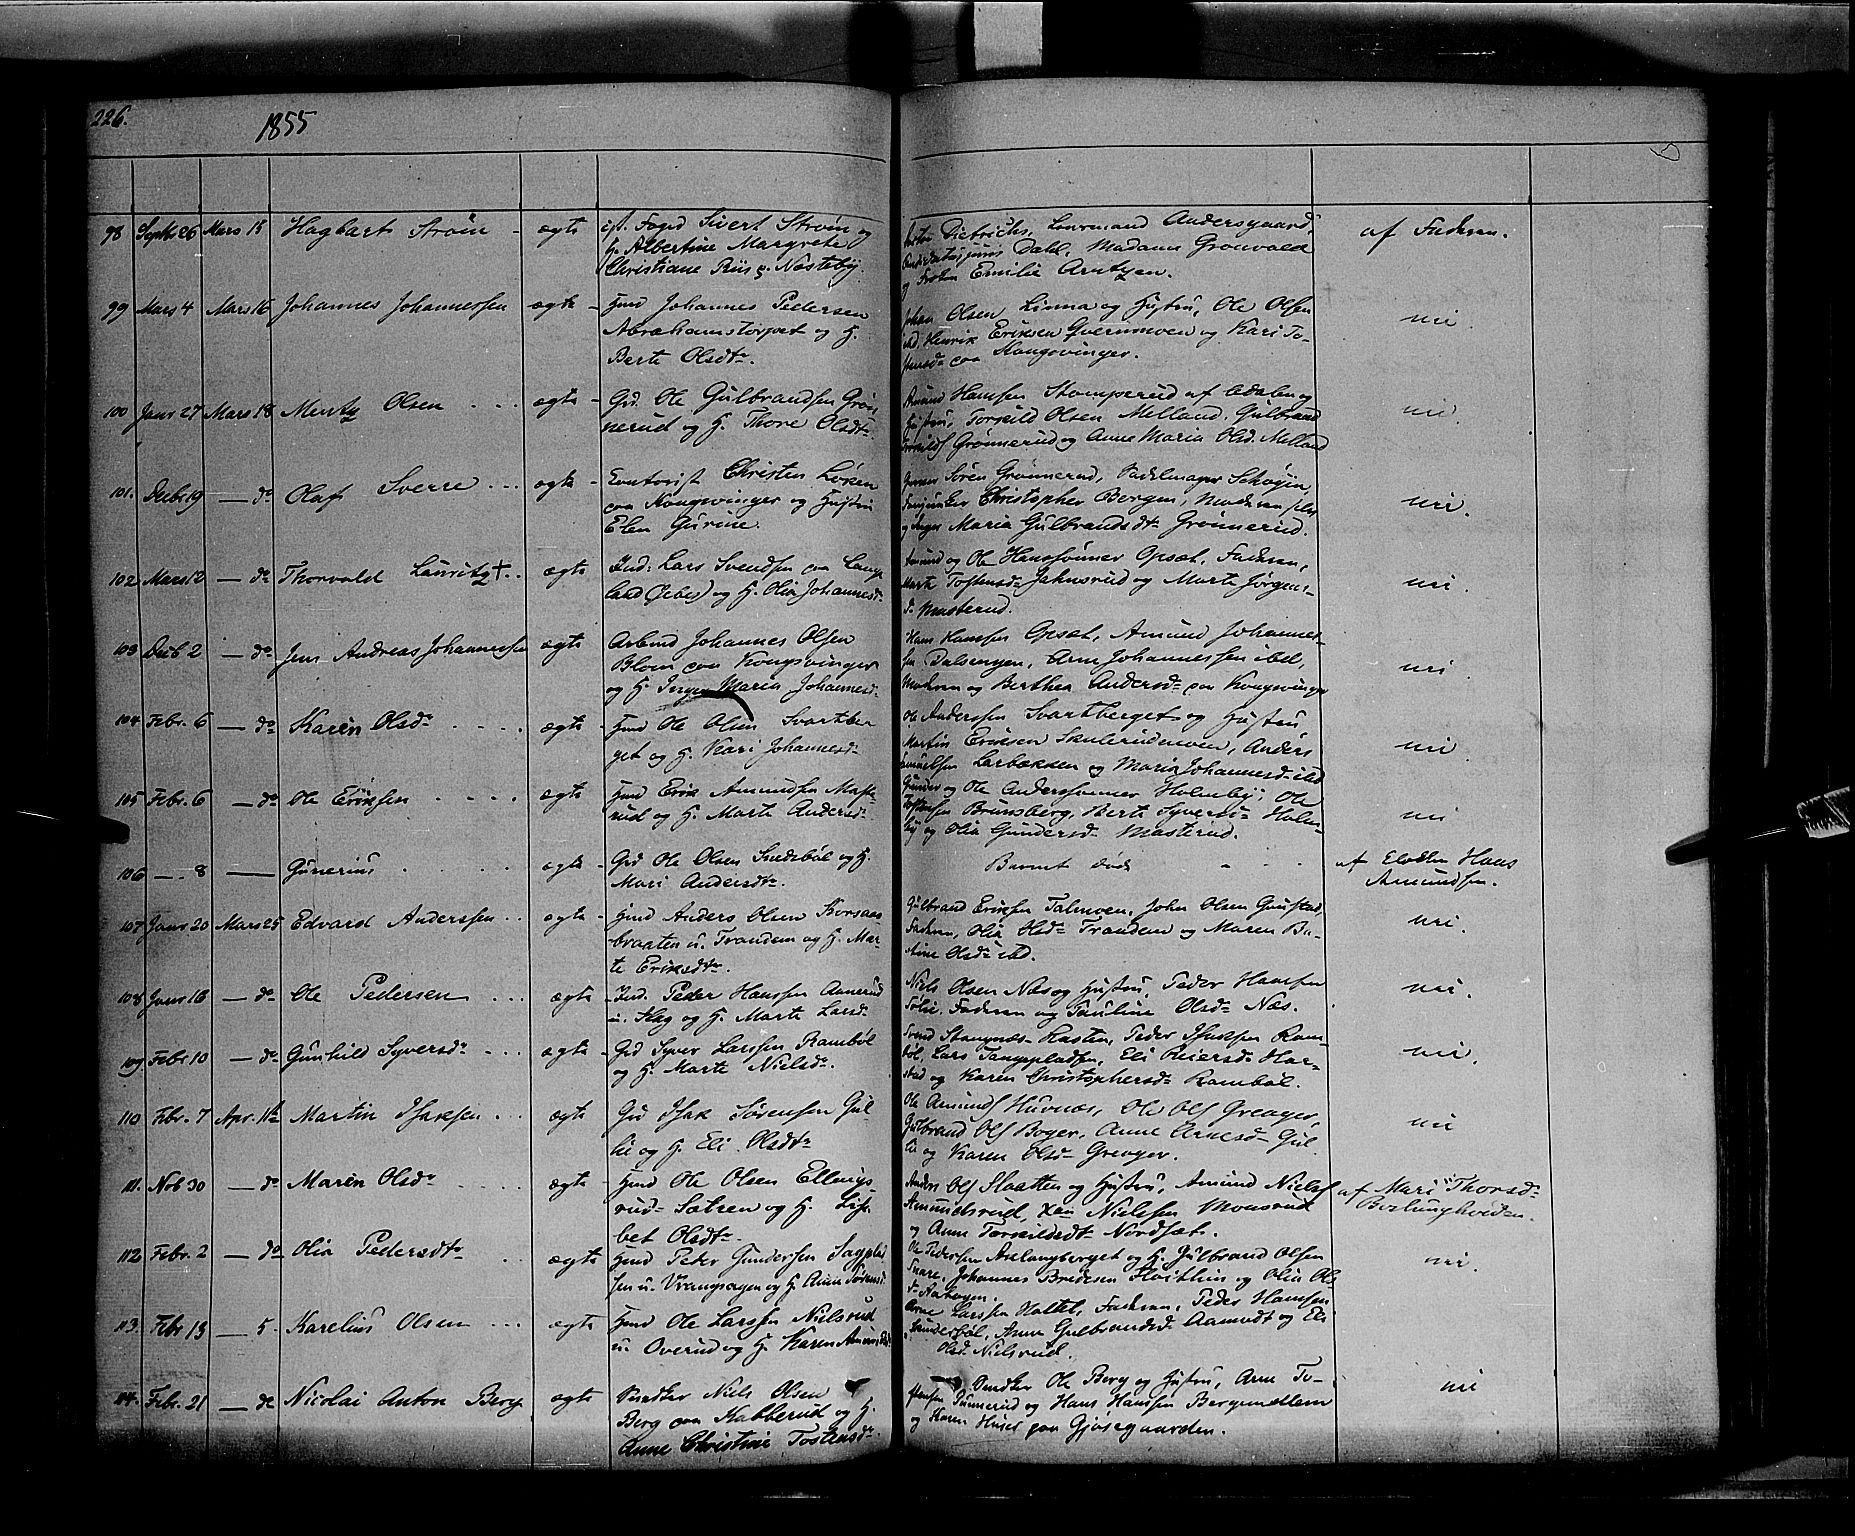 226.
1855
98 Septbr 26 Mars 15 Hagbart Strøm - ægte cst. Foged Sivert Strøm og
Fr. Albertine Margrete
Christiane Riis p. Næsteby.
Dietrichs, Andersgaard,
Dahl, Madame Grønvold
og Frøken Emilie Arntzen.
af Faderen.
99 Mars 4 Mars 16 Johannes Johannessen ægte - Hmd Johannes Pedersen
Abrahamstorpet og H.
Berte Olsdtr.
Johan Olsen Linna og Hustru, Ole Olsen
ibd, Henrik Eriksen Qvernmoen og Kari To-
stensd. paa Kongsvinger.
nei.
100 Janr 27 Mars 18 Mentz Olsen . . . ægte - Grd. Ole Gulbrandsen Grøn
nerud og H. Thore Olsdtr.
Amund Hansen Stomperud af Odalen og
Hustru, Torkild Olsen Melland, Gulbrand
Grønnerud og Anne Maria Olsd. Melland
nei
101. Decbr 19 — do Olaf Sverre . . . ægte - Contorist Christen Løken
paa Kongsvinger og Hustru
Elen Gurine.
Søren Grønnerud, Sadelmager Schøyen
Christopher Bergen, Moderen selv
og Maria Gulbrandsdtr Grønnerud.
nei.
102 Mars 12 — do Thorvald Lauritz † . . ægte Ind: Lars Svendsen paa Lange
land (Eber) og H. Olia Johannesdr
Amund og Ole Hanssønner Opset, Faderen,
Marte Tostensdr Jahnsrud og Marte Jørgens-
dr Masterud.
nei.
103 Decb 2 — do Jens Andreas Johannessen ægte Arbmd Johannes Olsen
Blom paa Kongsvinger
og H. Inger Maria Johannesdr
Hans Hansen Opset, Amund Johannes-
sen Dalsengen, Arne Johannessen ibd,
Moderen og Berthea Andersdr paa Kongsvinger
nei.
104 Febr. 6 — do Karen Olsdr . . . . ægte - Hmd Ole Olsen Svartber
get og H. Kari Johannesdr
Ole Anderssen Svartberget og Hustru
Martin Eriksen Skulerudmoen, Anders
Larbæksen og Maria Johannesdr ibd
nei.
105 Febr. 6 — do Ole Eriksen . . . . ægte Hmd Erik Amundsen Maste
rud og H. Marte Andersdr
Gunder og Ole Anderssønner Holmby, Ole
Tostensen Brunsberg, Berte Syversdr Holm-
by og Olia Gundersdr Masterud.
nei
106 — . 8 — Gunerius . . . . . ægte - Grd Ole Olsen Snedsbøl og H.
Mari Andersdtr.
Barnet død
af Elvdln Hans
Amundsen.
107 Janr 20 Mars 25 Edvard Anderssen . . ægte - Hmd Anders Olsen Korsaas
braaten u. Trandem og H. Mar-
te Eriksdtr.
Gulbrand Eriksen Talmoen, John Olsen Gunstad,
Faderen, Olia Olsdr Trandem og Maren Ba-
stine Olsdr ibd.
nei.
108 Janr 16 — do Ole Pedersen . . . ægte - Ind. Peder Hanssen Aanerud
u. Hag og H. Marte Larsdr
Niels Olsen Næs og Hustru, Peder Hansen
Solie, Faderen og Pauline Olsdr Næs.
nei.
109 Febr. 10 — do Gunhild Syversdr . . . ægte Grd Syver Larssen Rambøl
og H. Marte Nielsdr.
Svend Stangnæs-Hasten, Peder Isaksen Ram-
bøl, Lars Tangepladsen, Eli Reiersdr Har-
stad og Karen Christophersdr Rambøl.
nei.
110 Febr. 7 Apr. 1ste Martin Isaksen . . . ægte Grd Isak Sørensen Gul
lie og H. Eli Olsdtr
Ole Amunds Huvnæs, Ole Ols Greager,
Gulbrand Ols Boger, Anne Arnesdr Gul-
lie og Karen Olsdr Greager.
nei
111. Nov 30 — do Maren Olsdr . . . ægte Hmd Ole Olsen Ellings-
rud-Sætren og H. Lis-
bet Olsdtr.
Anders Ols Slaatten og Hustru, Amund Niels
Amundsrud, Nielsen Monsrud
og Anne Torkildsdtr Nordset.
af Mari Thorsdr
112 Febr. 2 — do Olia Pedersdtr . . ægte Hmd Peder Gundersen Sagplad
sen u. Vrangsagen og H. Anne Sørensdr
Ole Pedersen Aslangberget og H. Gulbrand Olsen
Snare, Johannes Bredesen og Olia Ols-
dr Aabogen.
nei.
113. Febr 13 — 5. Karelius Olsen . . . ægte Hmd Ole Larssen Nielsrud
u. Overud og H. Karen
Arne Larssen Holtet, Faderen, Peder Hansen
Anne Gulbrandsdr Aamodt og Eli
Olsdr Nielsrud.
114. Febr. 21 — do Nicolai Anton Berg ægte Snedker Niels Olsen
Berg paa Kabberud og H.
Anne Christine Tostensdr
Snedker Ole Berg og Hustru, Arne To-
stensen og Hans Hansen Bergmellem
og Karen Huser paa Gjøsegaarden.
nei